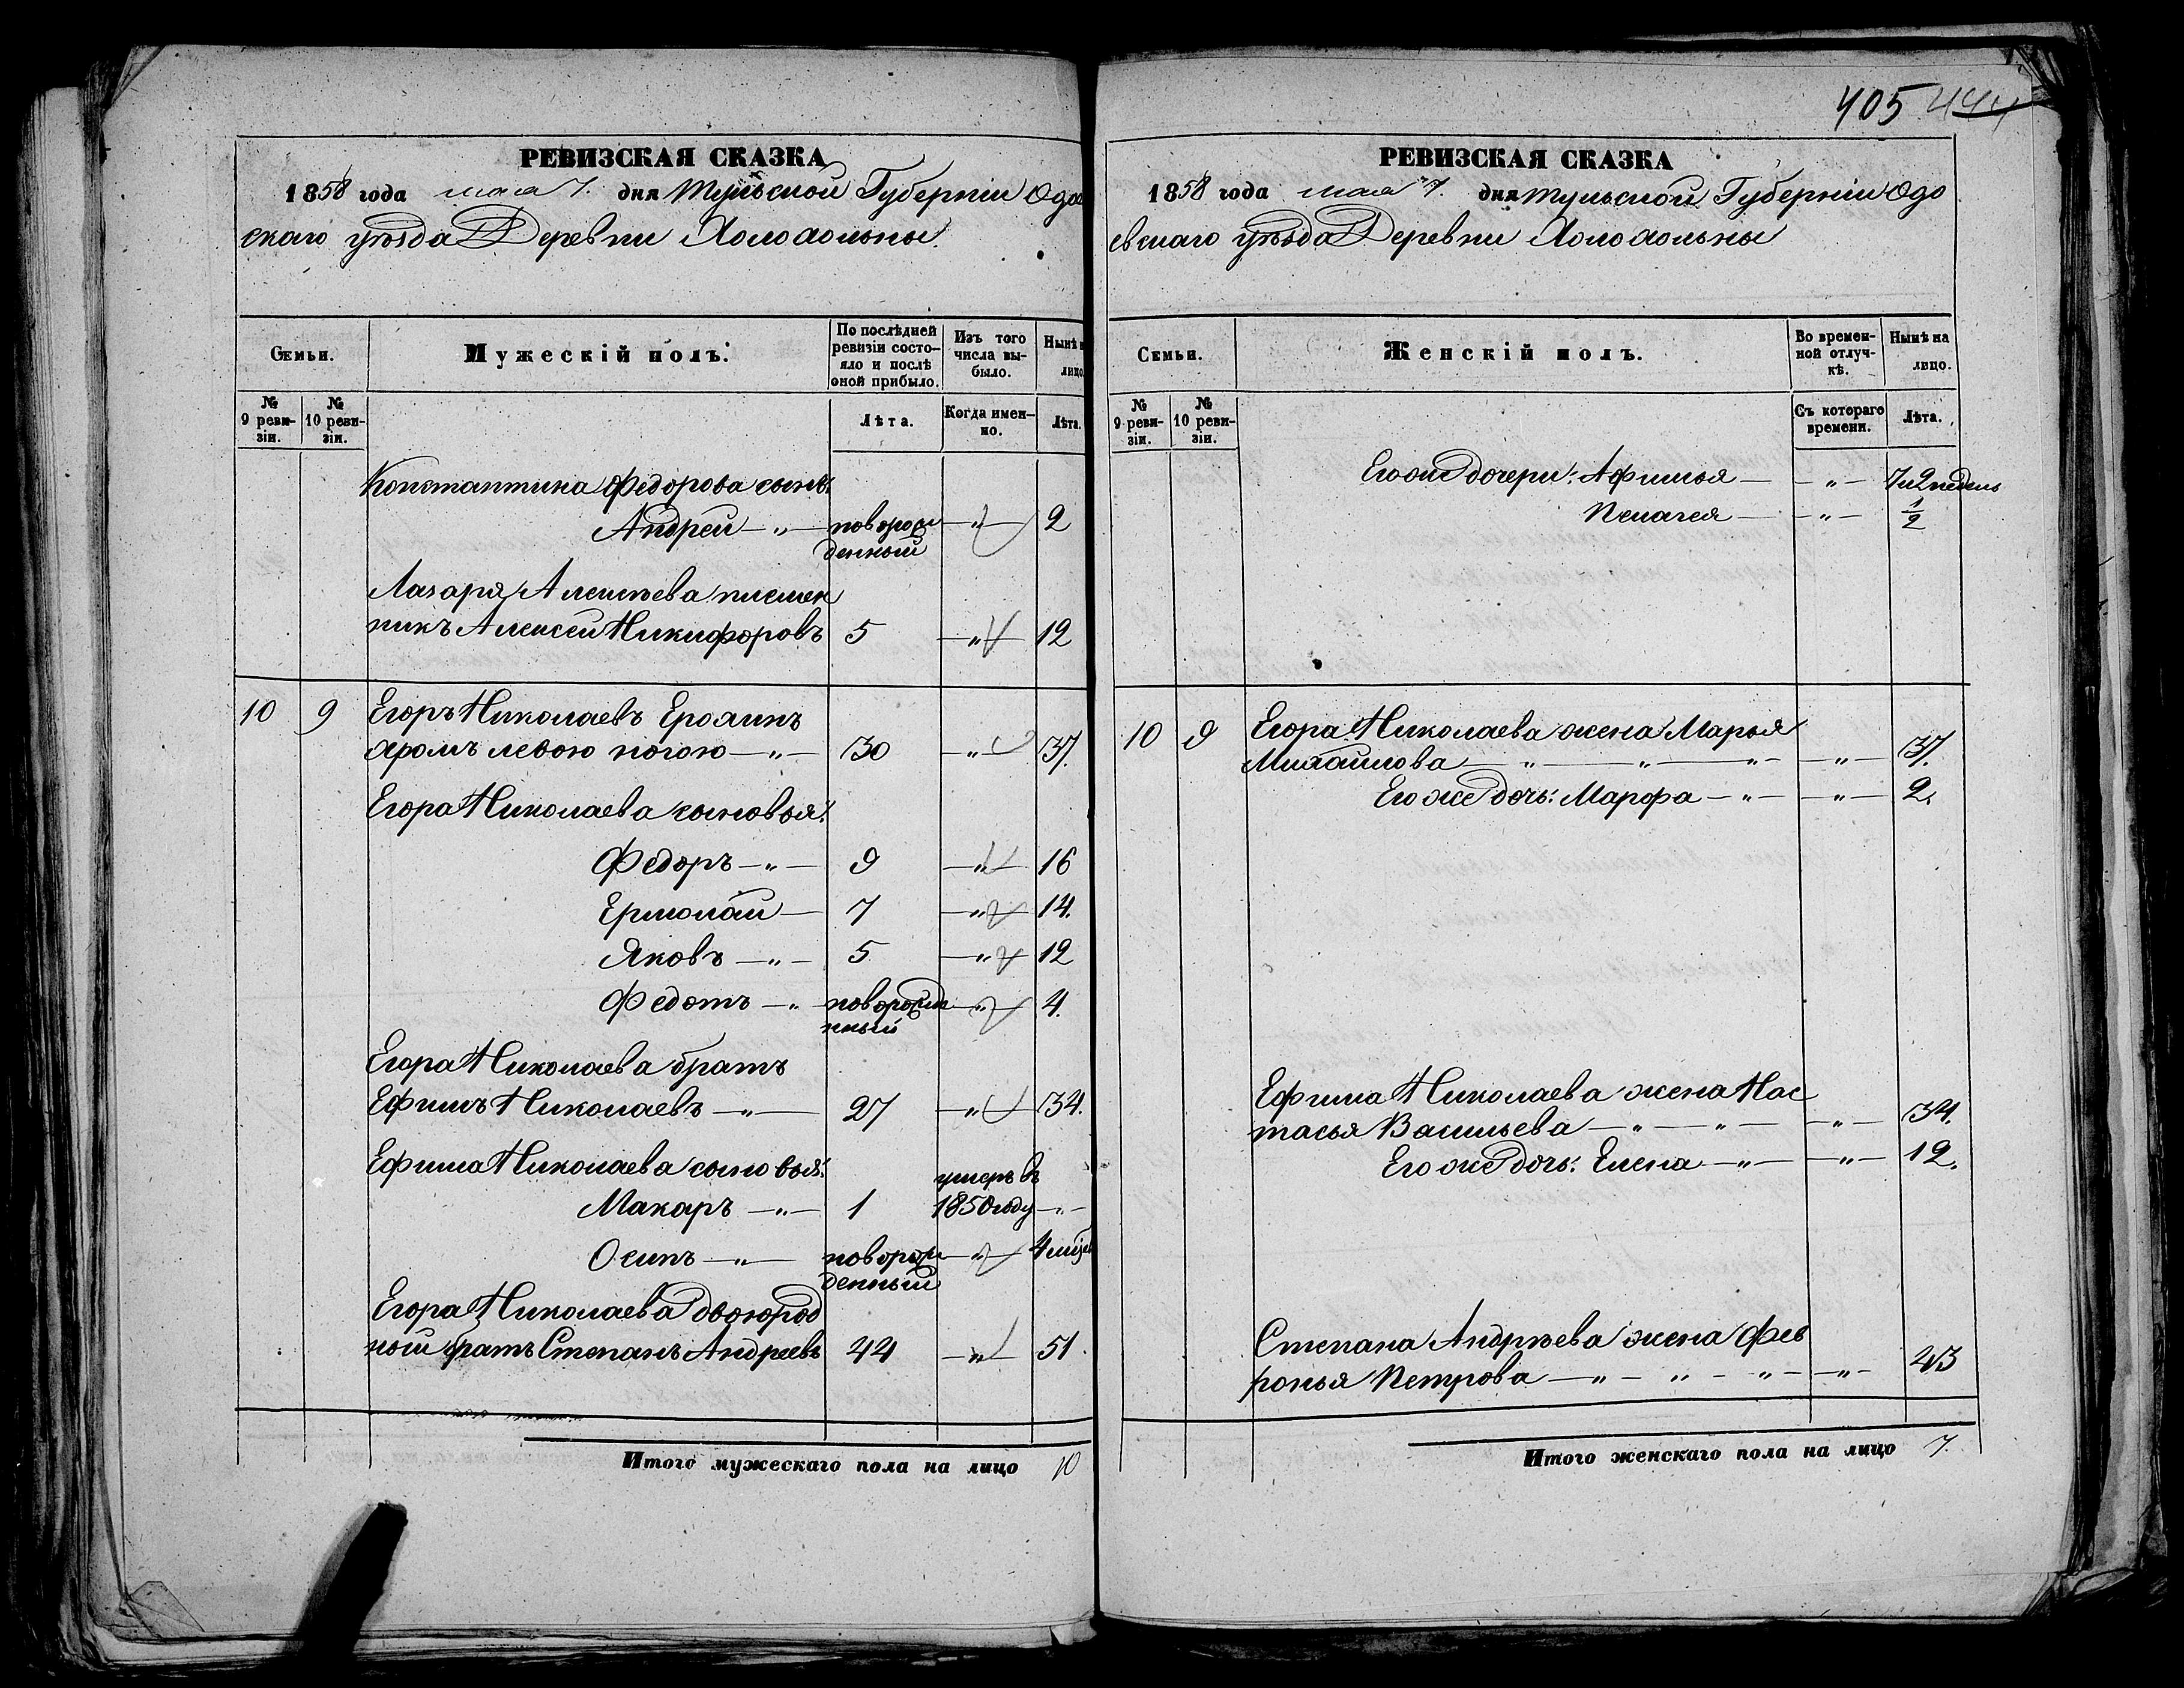 РЕВИЗСКАЯ СКАЗКА
1858 года мая 7. дня Тульской Губернiи Одое
скаго уѣзда Деревни Холохольны.
Семьи.
Мужескiй полъ.
По послѣдней ревизiи состо-
яло и послѣ
оной прибыло.
Изъ того
числа вы-
было.
Нынѣ на
лицо.
№
9 реви-
зiи.
№
10 реви-
зiи.
Лѣта.
Когда имен-
но.
Лѣта.
Константина Федорова сынъ
Андрей — „ — новорож — „ — 2
денный
Лазаря Алексѣева племян
никъ Алексей Никифоровъ 5 — „ — 12
10 9 Егоръ Николаевъ
хромъ левою ногою — „ — 30 — „ — 37.
Егора Николаева сыновья:
Федоръ — „ — 9 — „ — 16
Ермолай — 7 — „ — 14.
Яковъ — „ — 5 — „ — 12
Федотъ — „ новорожде — „ — 4.
нный
Егора Николаева братъ
Ефимъ Николаевъ — „ — 27 — „ — 34.
Ефима Николаева сыновья:
умеръ въ
Макаръ — „ — 1 1850 году — „ —
Осипъ — „ — новорож — „ — 4 мѣся
денный
Егора Николаева двоюрод
ной братъ Степанъ Андреевъ 44 — „ — 51.
Итого мужескаго пола на лицо 10
405 444
РЕВИЗСКАЯ СКАЗКА
1858 года мая 7. дня Тульской Губернiи Одо
евскаго уѣзда Деревни Холохольны
Семьи.
Женскiй полъ.
Во времен-
ной отлуч-
кѣ.
Нынѣ на
лицо.
№
9 реви-
зiи.
№
10 реви-
зiи.
Съ котораго
времени.
Лѣта.
Его же дочери: Афимья — — „ — 7 и 2 недель
Пелагея — — „ — 1/2
10 9 Егора Николаева жена Марья
Михайлова — „ — „ — „ — — „ — 37.
Его же дочь: Марфа — „ — — „ — 2.
Ефима Николаева жена Нас
тасья Васильева — „ — „ — — „ — 34.
Его же дочь: Елена — „ — — „ — 12.
Степана Андрѣева жена Фев
ронья Петрова — „ — „ — „ — — „ — 43
Итого женскаго пола на лицо 7.